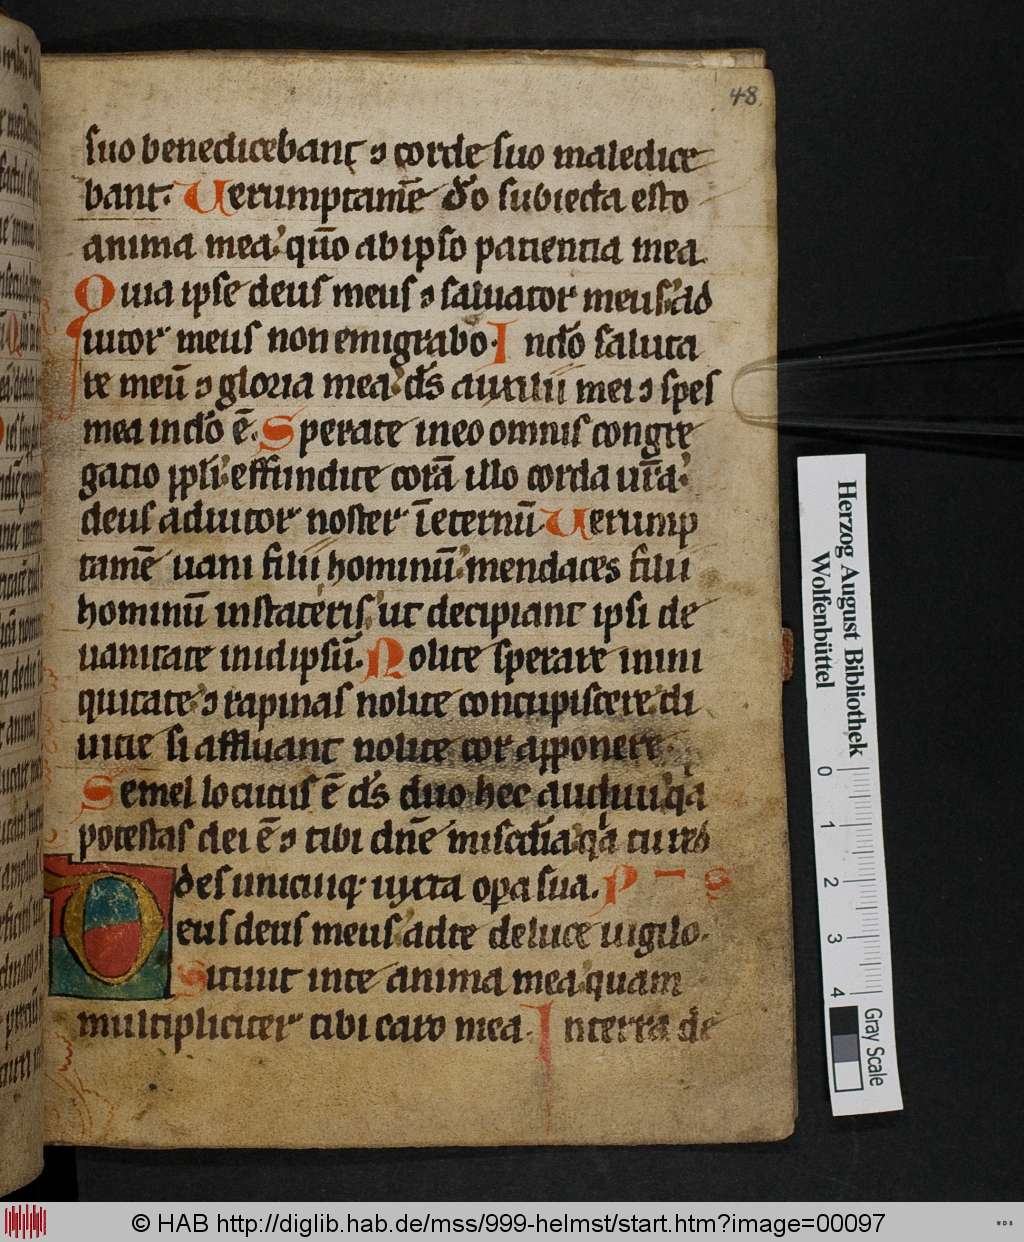 48
suo benedicebant ⁊ corde suo maledice
bant. Verumptam̄e do subiecta esto
anima mea quō ab ipso patientia mea.
Quia ipse deus meus ⁊ saluator meus ad
iutor meus non emigrabo. In do saluta
re meū ⁊ gloria mea ds̄ auxilii mei ⁊ spes
mea in do ē. Sperate in eo omnis congre
gatio ppli effundite corā illo corda ur̄a
deus adiutor noster ī eternū Verump
tam̄e uani filii hominū mendaces filii
hominū in stateris ut decipiant ipsi de
uanitate in idipsū. Nolite sperare in ini
quitate ⁊ rapinas nolite concupiscere di
uitie si affluant nolite cor apponere.
Semel locutus ē ds̄ duo hec audiui qa
potestas dei ē ⁊ tibi dn̄e misc̄dia qa tu red
des unicuiq iuxta opa sua. P s
Deus deus meus ad te de luce uigilo.
Sitiuit in te anima mea quam
multipliciter tibi caro mea. In terra de
Herzog August Bibliothek
Wolfenbüttel
0 1 2 3 4
Gray Scale
© HAB http://diglib.hab.de/mss/999-helmst/start.htm?image=00097